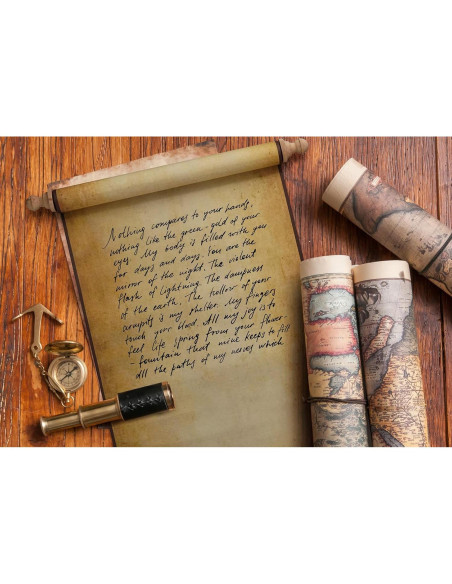 Nothing compares to your hands,
nothing like the green-gold of your
eyes. My body is filled with you
for days and days. You are the
mirror of the night. The violent
flash of lightning. The dampness
of the earth. The hollow of your
armpits is my shelter. My fingers
touch your blood. All my joy is to
feel life spring from your flower-
-fountain that mine keeps to fill
all the paths of my nerves which